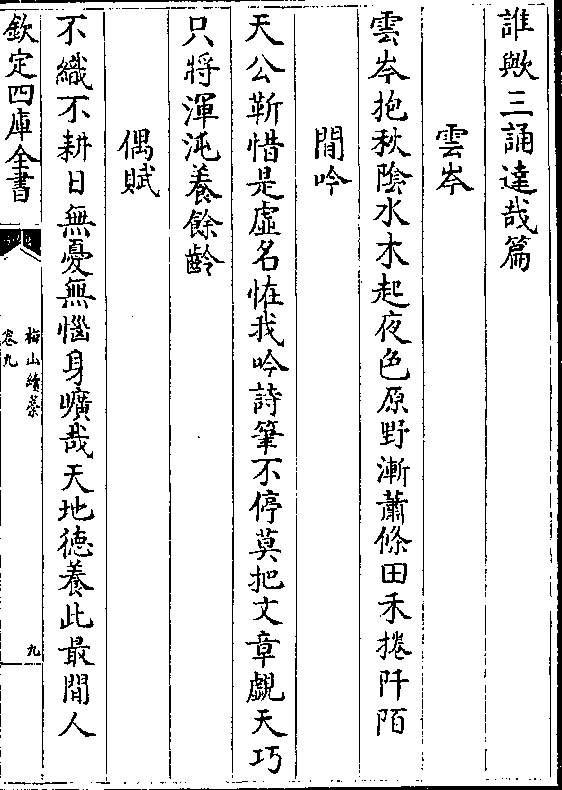 誰歟三誦達哉篇
雲岑
雲岑抱秋陰水木起夜色原野漸蕭條田禾捲阡陌
閒吟
天公靳惜是虛名恠我吟詩筆不停莫把文章覷天巧
只將渾沌養餘齡
偶賦
不織不耕日無憂無惱身曠哉天地徳養此最閒人
欽定四庫全書
梅山續藁
卷九
九